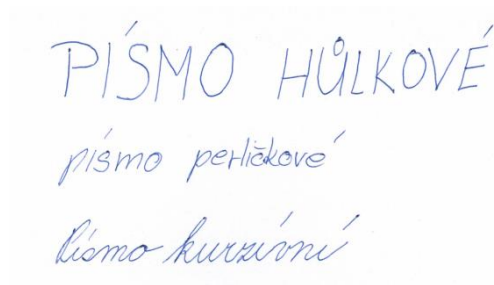 PÍSMO HŮLKOVÉ
písmo perličkové
Písmo kurzívní